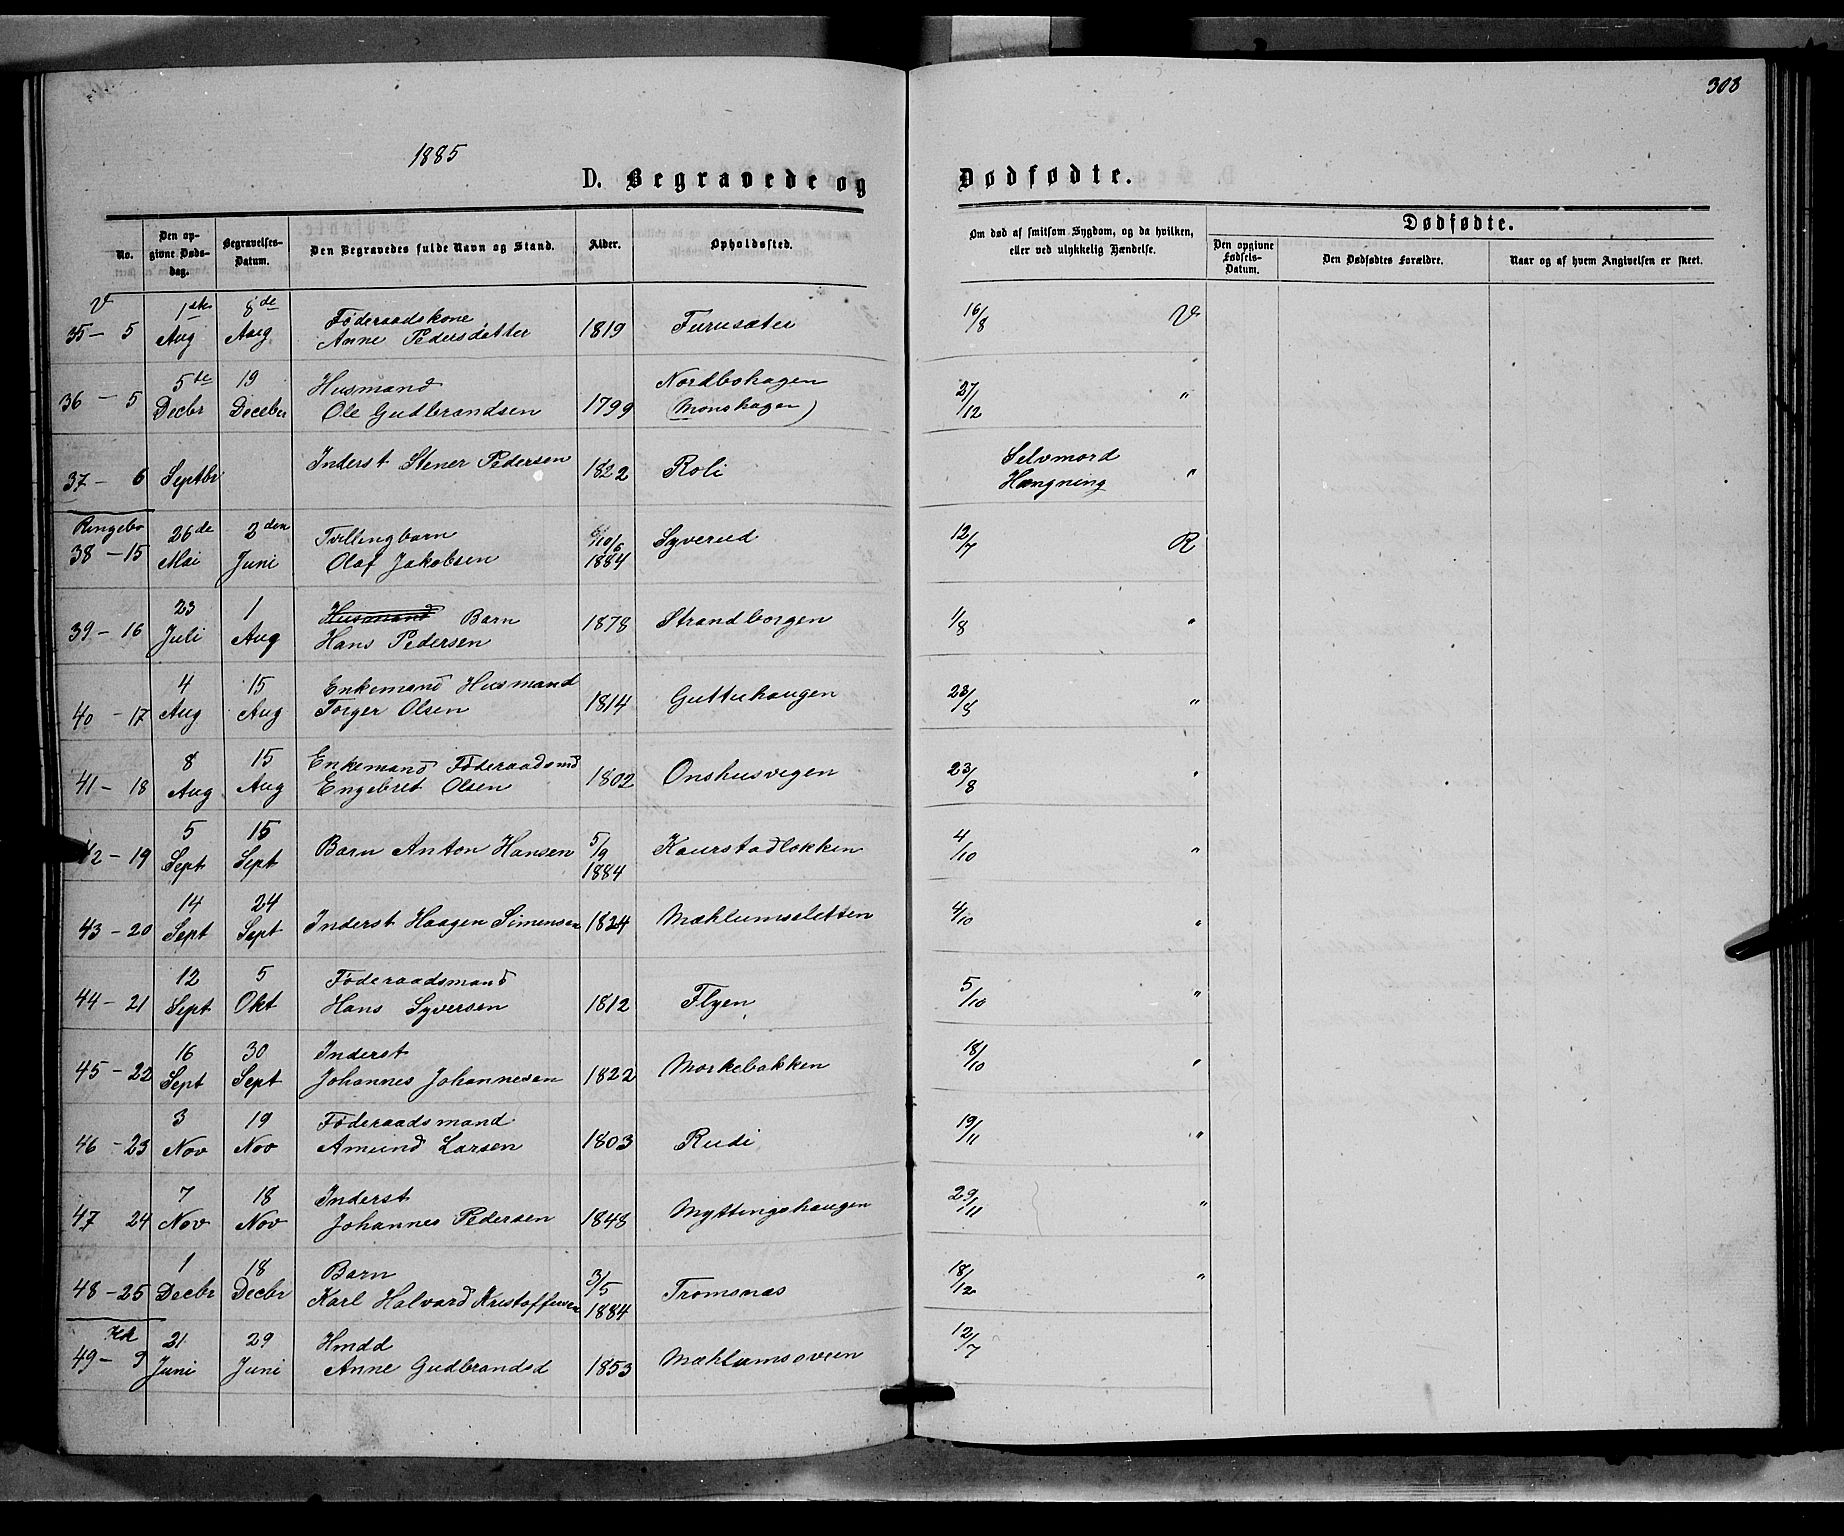 308
1885
D. Begravede og Dødfødte.
No. Den opgivne Dødsdag. Begravelses-Datum. Den Begravedes fulde Navn og Stand. Alder. Opholdssted. Om død af smitsom Sygdom, og da hvilken, eller ved ulykkelig Hændelse. Dødfødte.
Den opgivne Fødsels-Datum. Den Dødfødtes Forældre. Naar og af hvem Angivelsen er skeet.
V
35 – 5 1ste Aug 8de Aug Føderaadskone Anne Pedersdatter 1819 Furusæter 16/8 V
36 – 5 5te Decbr 19 Deceber Husmand Ole Gudbrandsen 1799 Nordbohagen (Monshagen) 27/12 "
37 – 6 Septbr Inderst Stener Pedersen 1822 Roli Selvmord Hængning "
Ringebo
38 – 15 26de Mai 2den Juni Tvillingbarn Olaf Jakobsen 1884 Syverud 12/7 R
39 – 16 23 Juli 1 Aug Husmand Barn Hans Pedersen 1878 Strandborgen 1/8 "
40 – 17 4 Aug 15 Aug Enkemand Husmand Torger Olsen 1814 Guttuhaugen 23/8 "
41 – 18 8 Aug 15 Aug Enkemand Føderaadsmd Engebret Olsen 1802 Onshusvegen 23/8 "
42 – 19 5 Sept 15 Sept Barn Anton Hansen 5/9 1884 Kaurstadløkken 4/10 "
43 – 20 14 Sept 24 Sept Inderst Haagen Simensen 1824 Mæhlumssletten 4/10 "
44 – 21 12 Sept 5 Okt Føderaadsmand Hans Syversen 1812 Flyen 5/10 "
45 – 22 16 Sept 30 Sept Inderst Johannes Johannesen 1822 Mørkebakken 18/10 "
46 – 23 3 Nov 19 Nov Føderaadsmand Amund Larsen 1803 Rudi 19/11 "
47 24 7 Nov 18 Nov Inderst Johannes Pedersen 1848 Myttingshaugen 29/11 "
48 – 25 1 Decbr 18 Decbr Barn Karl Halvard Kristoffersen 3/5 1884 Tromsnæs 18/12 "
49 – 9 21 Juni 29 Juni Hmdd Anne Gudbrandsd 1853 Mæhlumsøveien 12/7